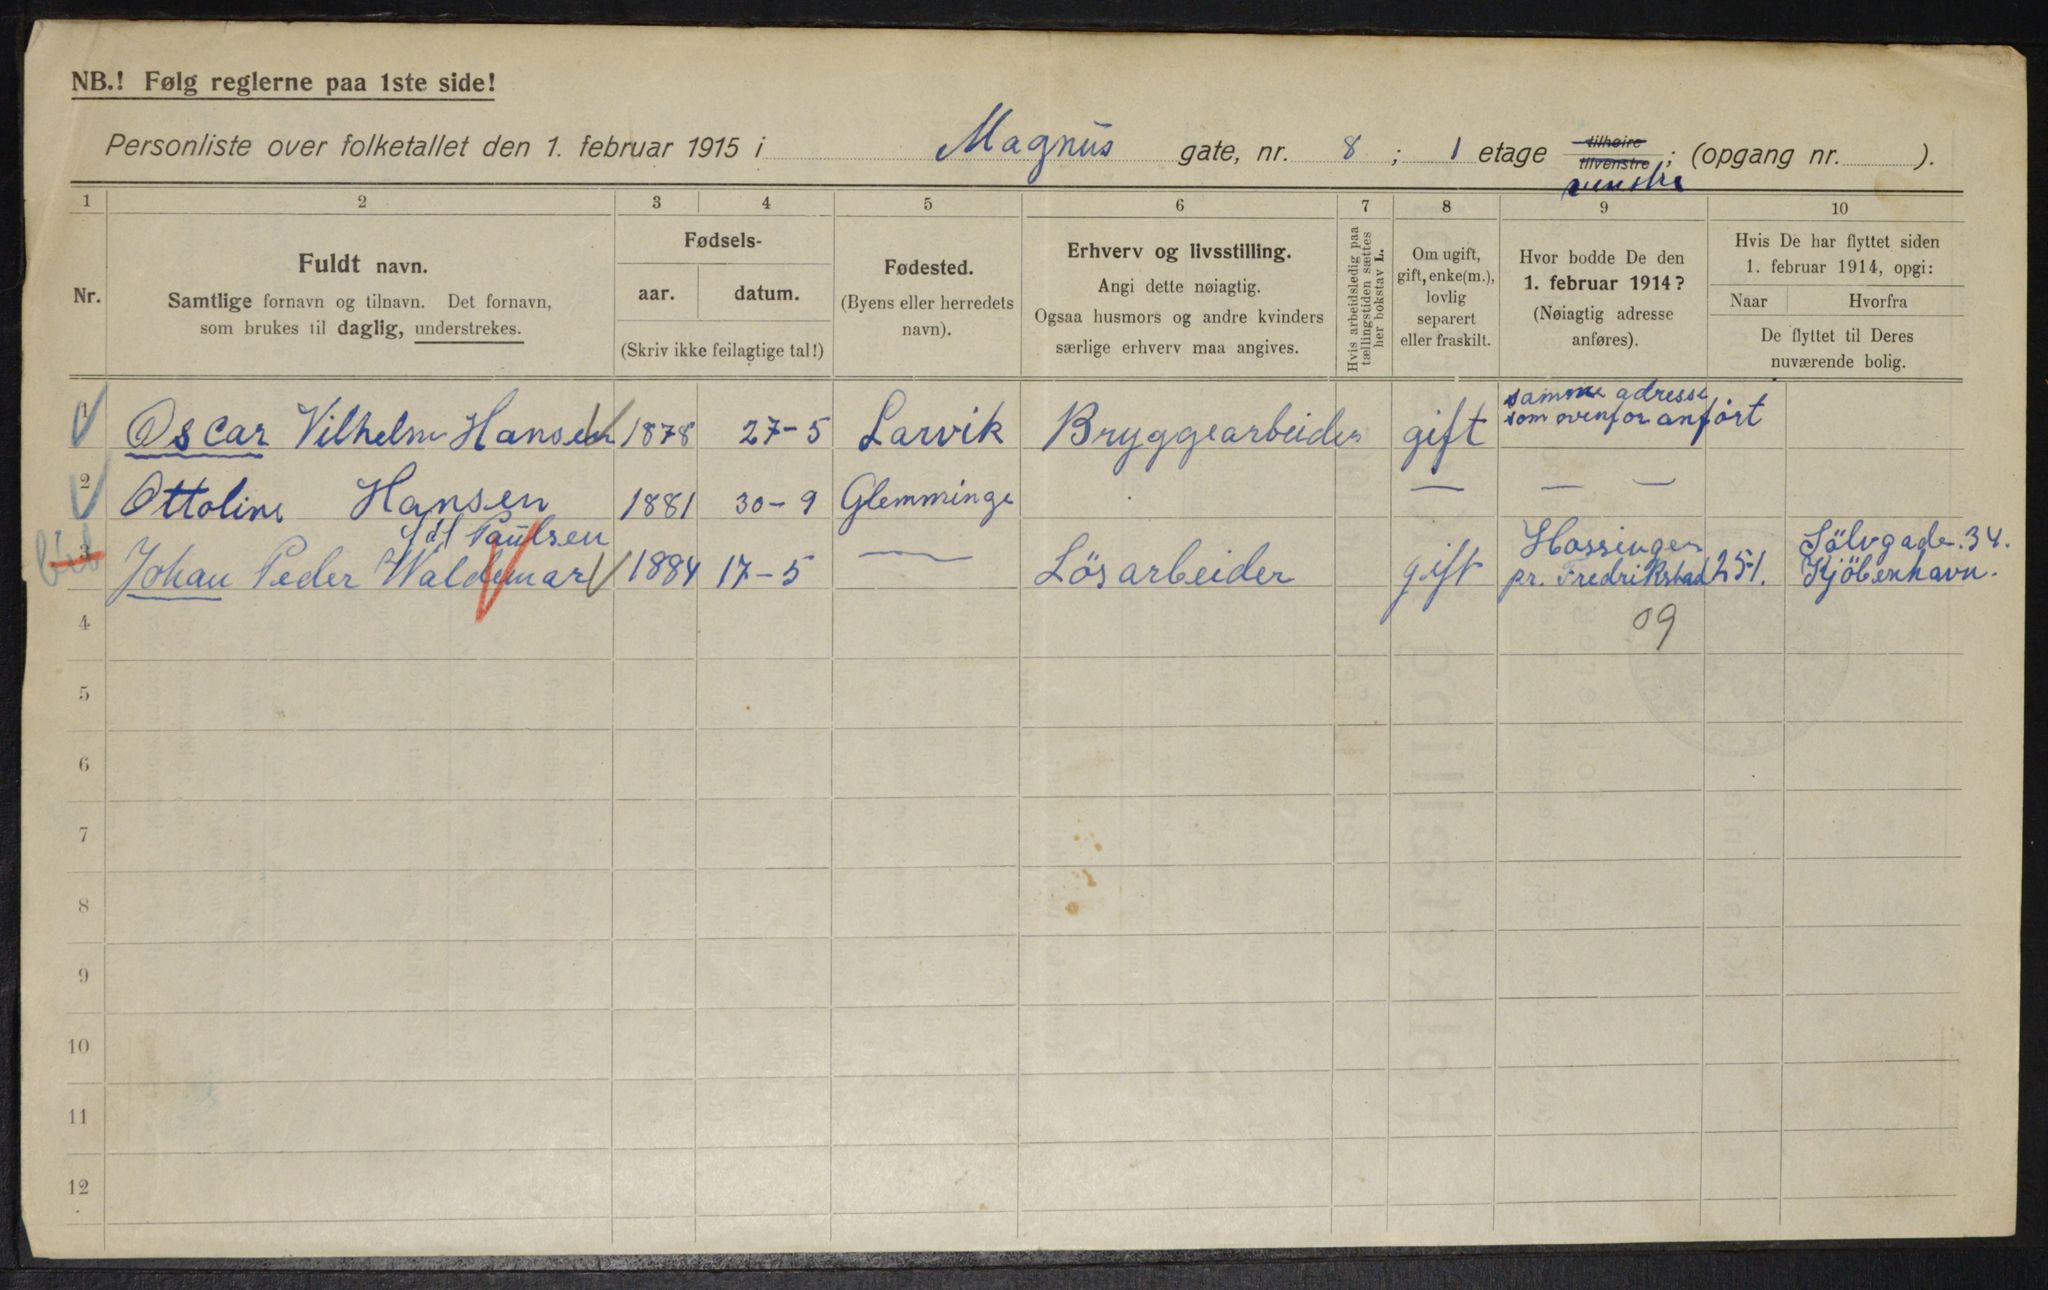 NB.! Følg reglerne paa 1ste side!
Personliste over folketallet den 1. februar 1915 i Magnus gate, nr. 8 ; 1 etage tilhøire tilvenstre venstre ; (opgang nr. ).
1 2 3 4 5 6 7 8 9 10
Nr.
Fuldt navn.
Samtlige fornavn og tilnavn. Det fornavn,
som brukes til daglig, understrekes.
Fødsels-
aar. datum.
(Skriv ikke feilagtige tal!)
Fødested.
(Byens eller herredets
navn).
Erhverv og livsstilling.
Angi dette nøiagtig.
Ogsaa husmors og andre kvinders
særlige erhverv maa angives.
Hvis arbeidsledig paa
tællingstiden sættes
her bokstav L.
Om ugift,
gift, enke(m.),
lovlig
separert
eller fraskilt.
Hvor bodde De den
1. februar 1914?
(Nøiagtig adresse
anføres).
Hvis De har flyttet siden
1. februar 1914, opgi:
Naar Hvorfra
De flyttet til Deres
nuværende bolig.
1 Oscar Vilhelm Hansen 1878 27-5 Larvik Bryggearbeider gift samme adresse
som ovenfor anført
2 Ottoline Hansen 1881 30-9 Glemminge — — —
3 Johan Peder Waldemar Paulsen 1884 17-5 — Lösarbeider gift
pr. Fredrikstad 251. Sölvgade. 34.
Kjöbenhavn.
4 09
5
6
7
8
9
10
11
12